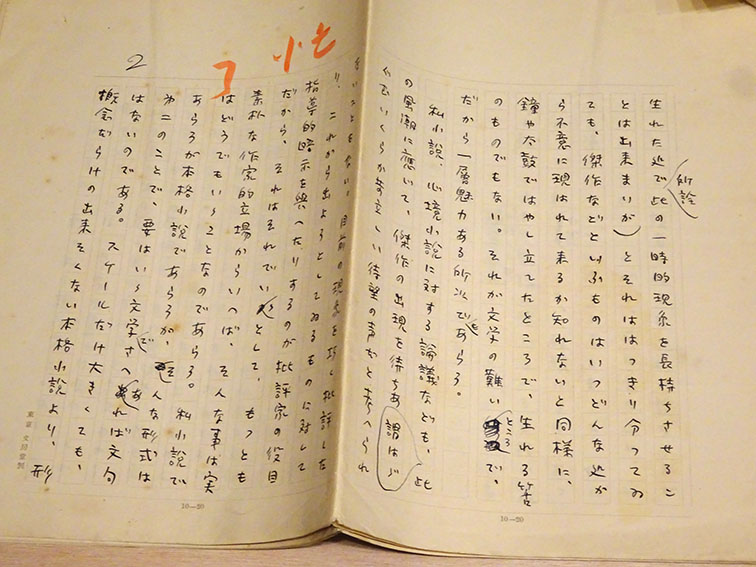 生れた近で此の一時的現象を長持ちさせるこ
所詮
とは出来まいが）とそれははつきり分つてゐ
ても、傑作などといふものはいつどんな処か
ら不意に現はれて来るか知れないと同様に、
鐘や太鼓ではやし立てたところで、生れる筈
のものでもない。それが文学の難い
ところ
で、
だから一層魅力ある所以であらう。
私小説、心境小説に対する論議なども、此
の風潮に應じて、傑作の出現を待ちあ
謂はゞ
ぐむいくらか苛立しい待望の声かと考へられ
2
了
り、これから出ようとしてゐるものに対して
指導的暗示を與へたりするのが批評家の役目
だから、それはそれでいゝとして、もつとも
素朴な作家的立場からいへば、そんな事は実
はどうでもいゝことなのであらう。私小説で
あらうが本格小説であらうが、そんな形式は
第二のことで、要はいゝ文学でさへあれば文句
はないのである。スケールだけ大きくても、
概念だらけの出来そくない本格小説より、形
東京 文房堂製
10—20
10—20